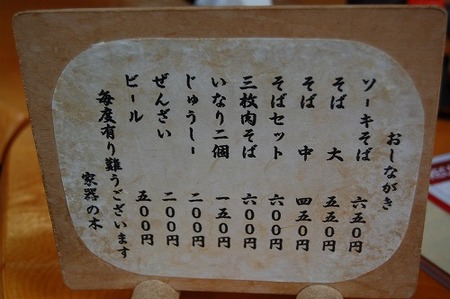 おしながき
ソーキそば 六五〇円
そば 大 五五〇円
そば 中 四五〇円
そばセット 六〇〇円
三枚肉そば 六〇〇円
いなり二個 一五〇円
じゅうしー 二〇〇円
ぜんざい 二〇〇円
ビール 五〇〇円
毎度有り難うございます
家器の木